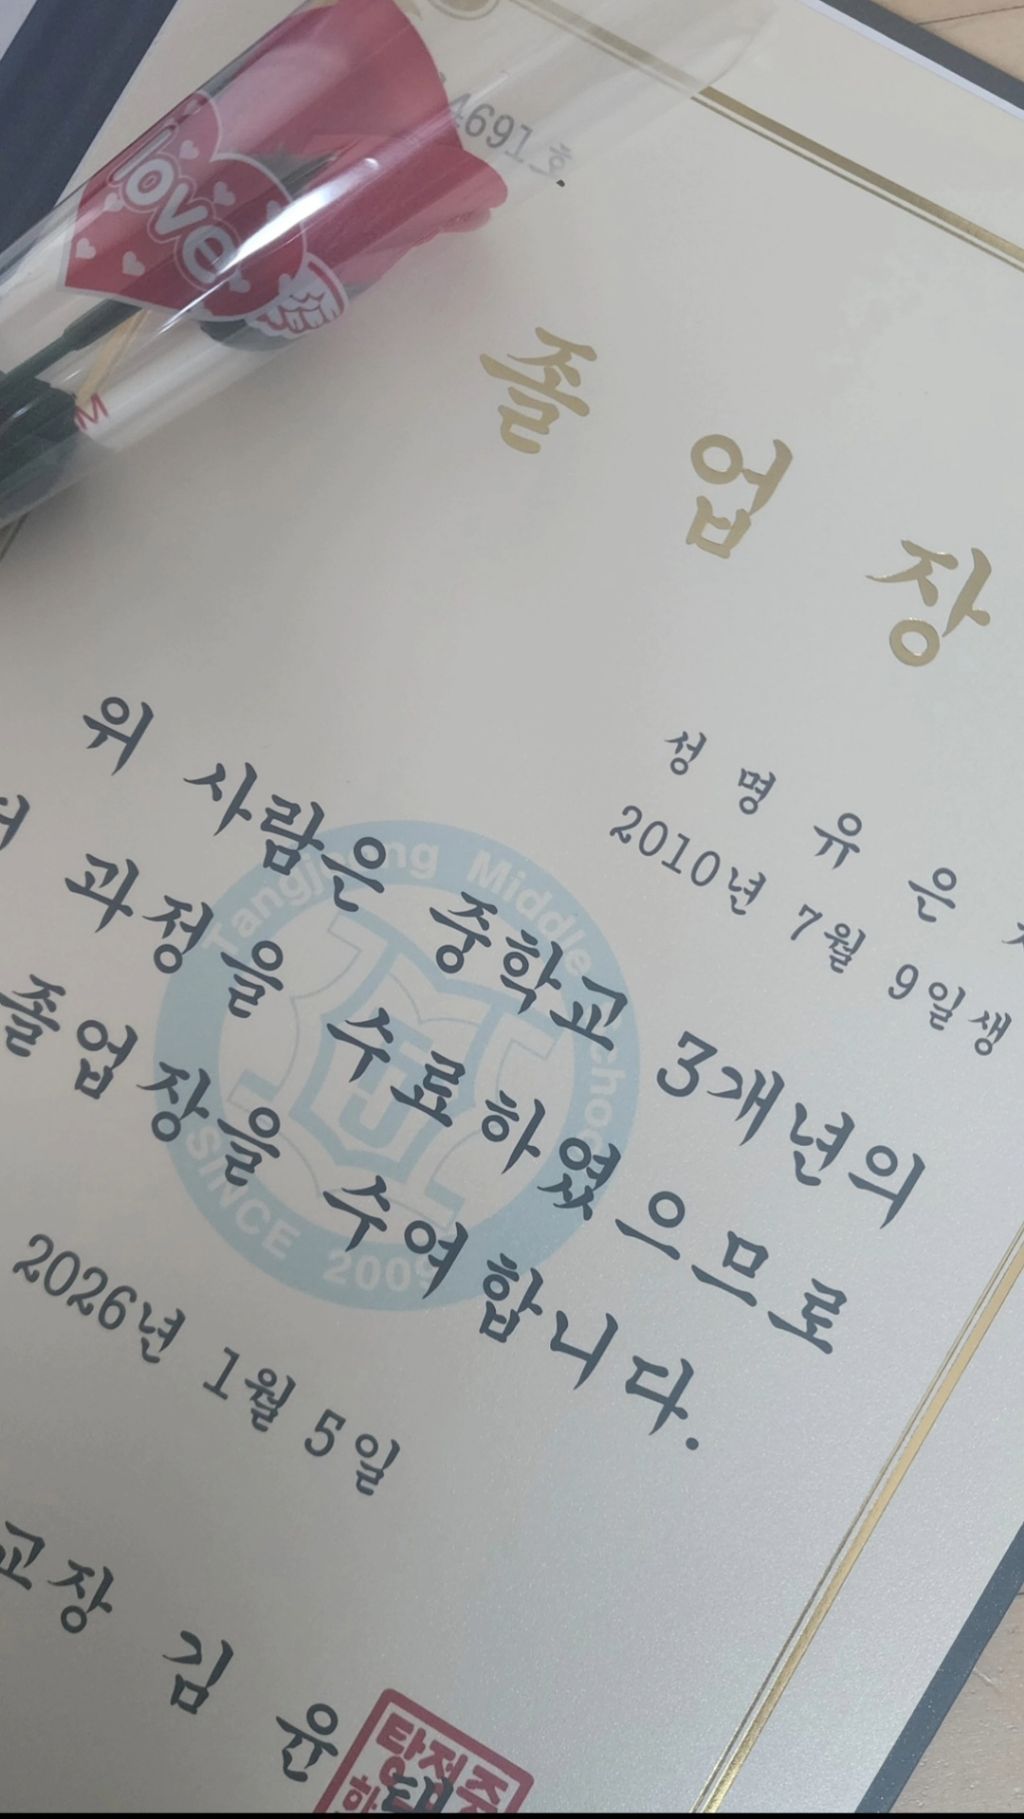 love
4691호
졸업장
성명 유 은
2010년 7월 9일생
위 사람은 중학교 3개년의
과정을 수료하였으므로
졸업장을 수여합니다.
Tangjeong Middle School
SINCE 2009
2026년 1월 5일
교장 김 윤
탕정중